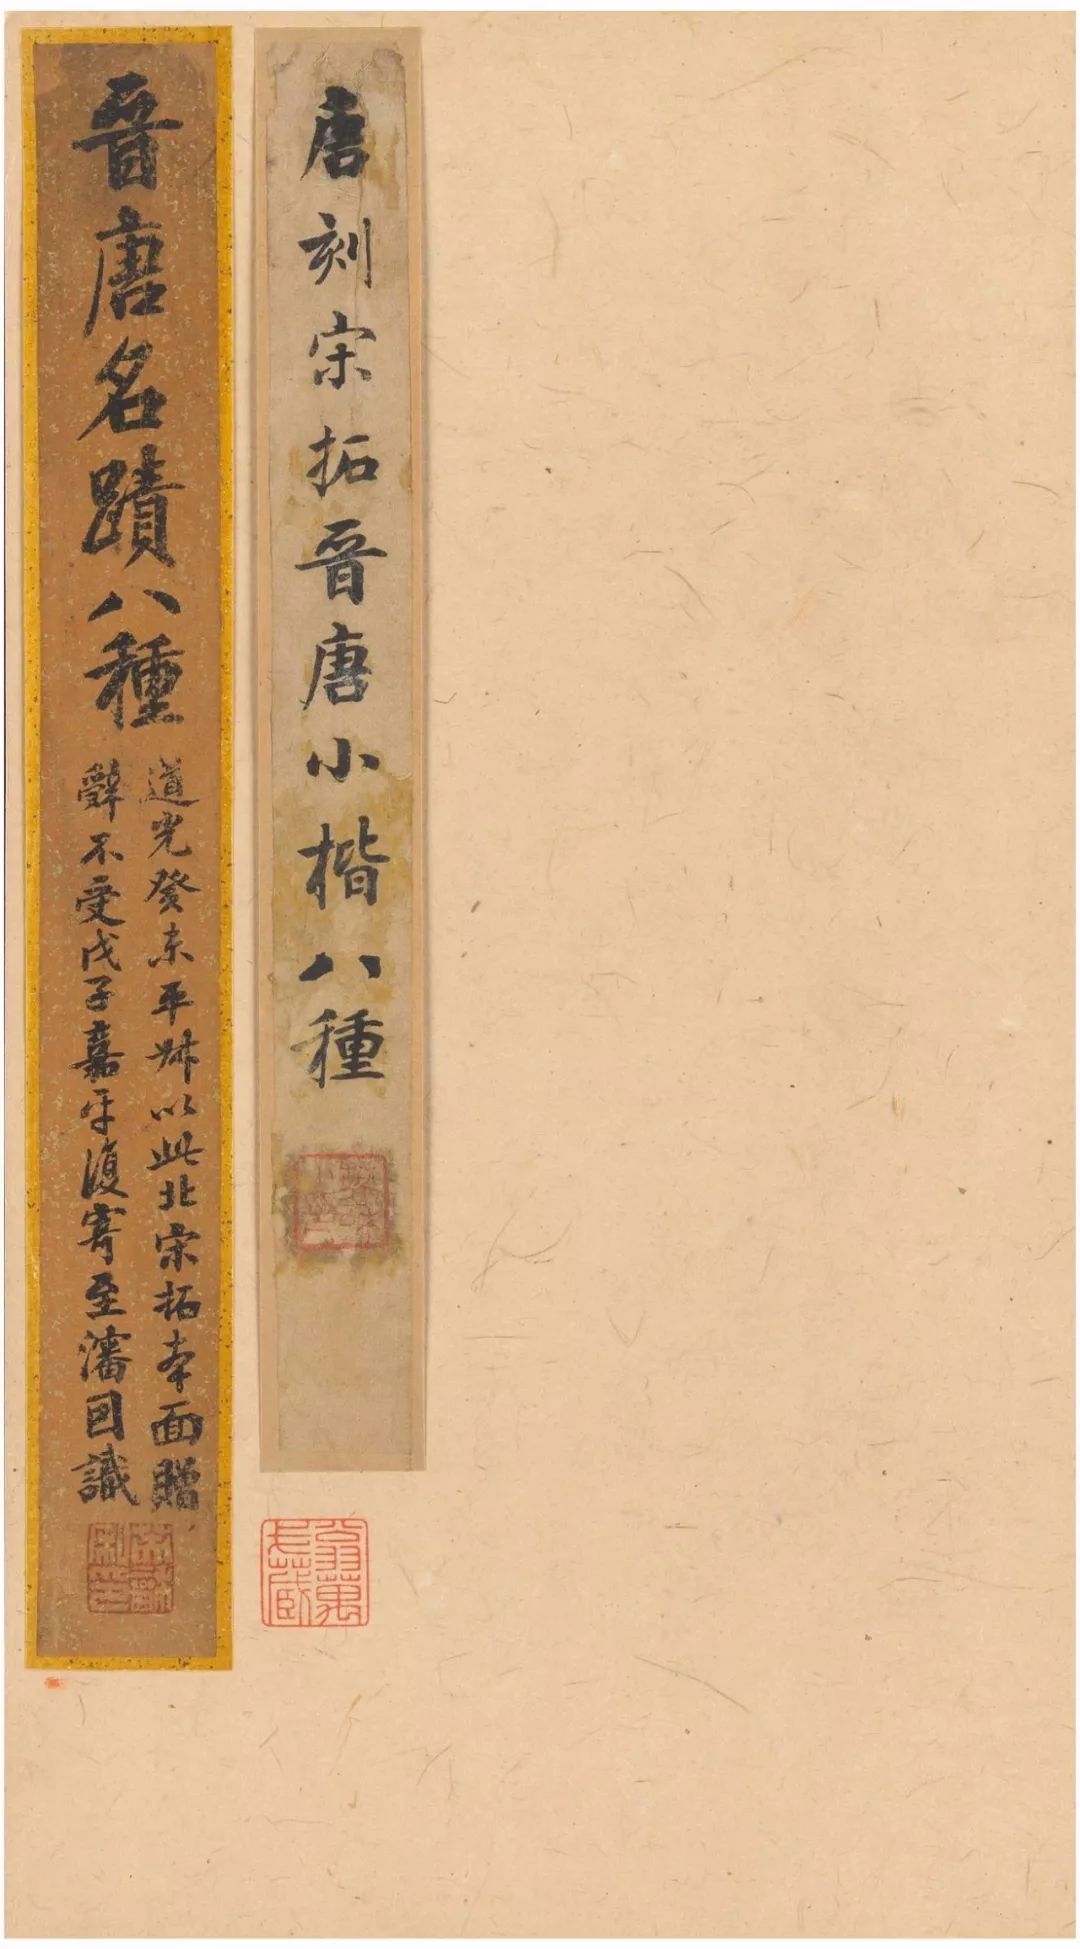 唐刻宋拓晉唐小楷八種
晉唐名蹟八種
道光癸未平叔以此北宋拓本面贈
辭不受戊子嘉平復寄至瀋因識
翁萬戈藏